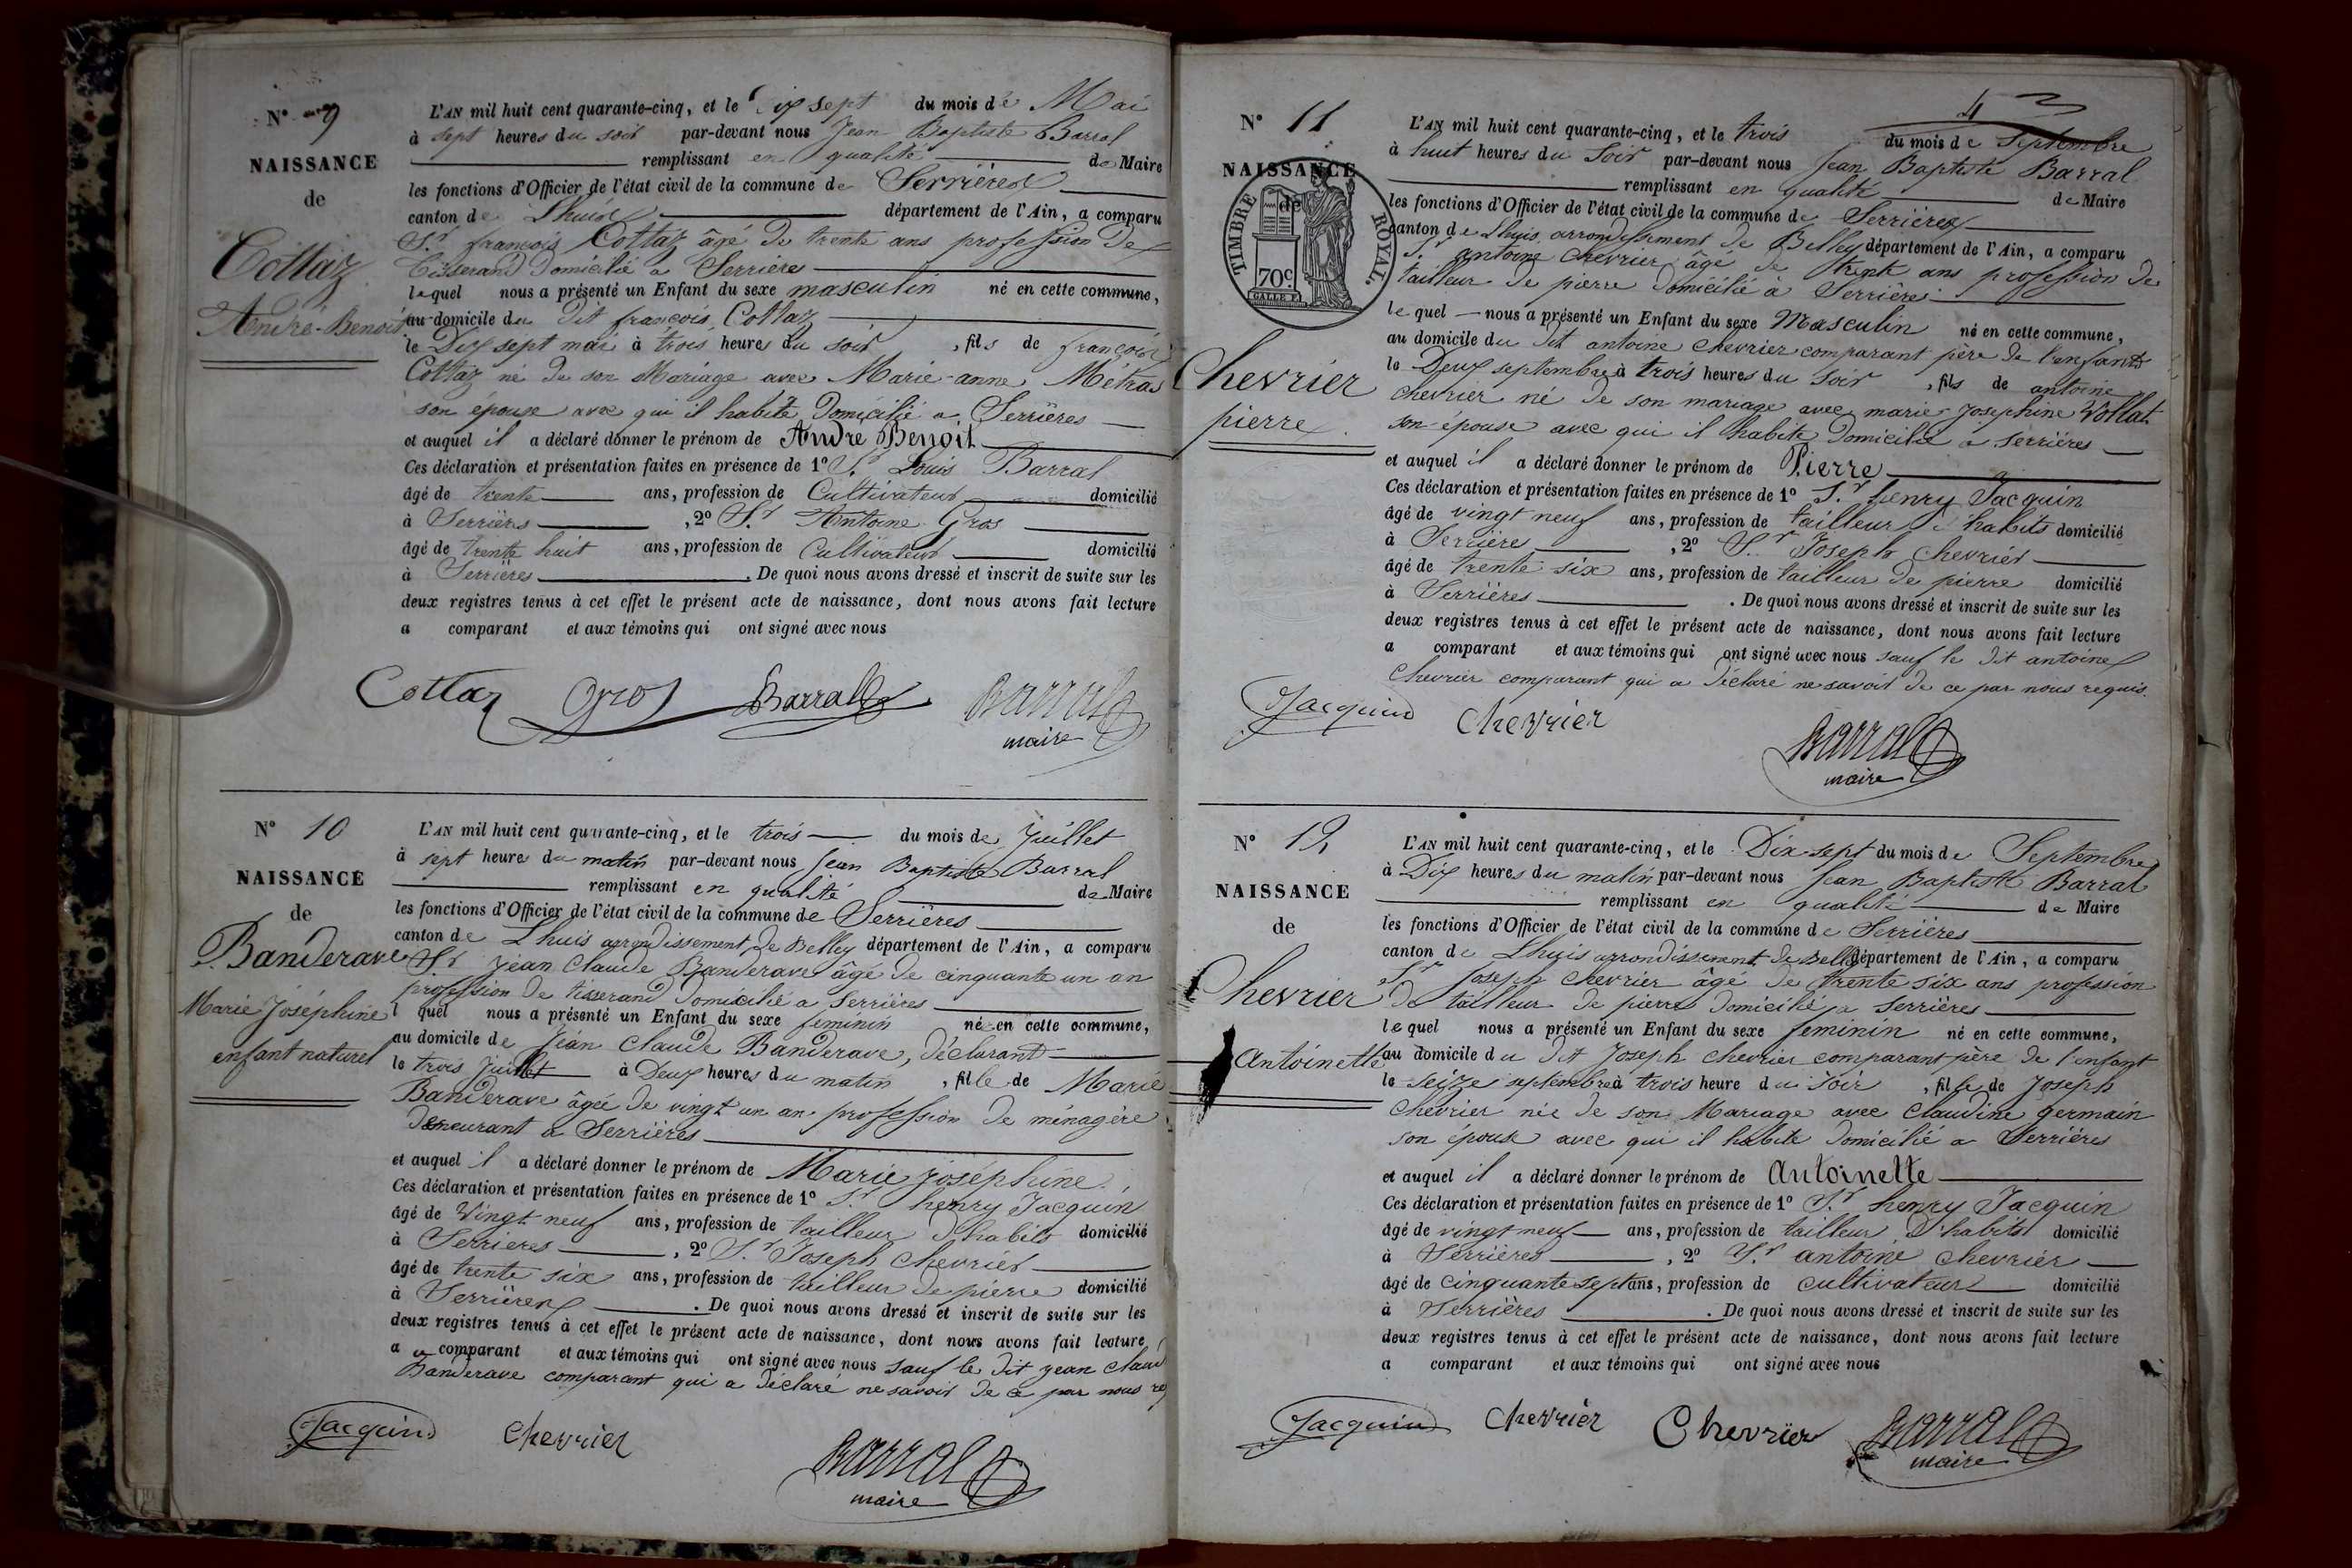 N° 9
NAISSANCE
de
Cottaz
André-Benoit
L'AN mil huit cent quarante-cinq, et le Dix sept du mois de Mai
à sept heures du soir par-devant nous Jean Baptiste Barral
remplissant en qualité de Maire
les fonctions d'Officier de l'état civil de la commune de Serrières
canton de Lhuis département de l'Ain, a comparu
Sr françois Cottaz âgé de trente ans profession de
tisserand domicilié a Serrière
lequel nous a présenté un Enfant du sexe masculin né en cette commune,
au domicile du dit françois Cottaz
le Dix sept mai à trois heures du soir, fils de françois
Cottaz né de son Mariage avec Marie-anne Métras
son épouse avec qui il habite domicilié a Serrières
et auquel il a déclaré donner le prénom de André Benoit
Ces déclaration et présentation faites en présence de 1° Sr Louis Barral
âgé de trente ans, profession de Cultivateur domicilié
à Serrières, 2° Sr Antoine Gros
âgé de trente huit ans, profession de Cultivateur domicilié
à Serrières. De quoi nous avons dressé et inscrit de suite sur les
deux registres tenus à cet effet le présent acte de naissance, dont nous avons fait lecture
a comparant et aux témoins qui ont signé avec nous
Cottaz Gros Barral Barral
maire
N° 10
NAISSANCE
de
Banderave
Marie Joséphine
enfant naturel
L'AN mil huit cent quarante-cinq, et le trois du mois de Juillet
à sept heures du matin par-devant nous Jean Baptiste Barral
remplissant en qualité de Maire
les fonctions d'Officier de l'état civil de la commune de Serrières
canton de Lhuis arrondissement de Belley département de l'Ain, a comparu
Sr jean Claude Banderave âgé de cinquante un an
profession de tisserand domicilié a Serrières
l quel nous a présenté un Enfant du sexe féminin né en cette commune,
au domicile de jean Claude Banderave, déclarant
le trois Juillet à Deux heures du matin, fille de Marie
Banderave âgée de vingt un an profession de ménagère
demeurant a Serrières
et auquel il a déclaré donner le prénom de Marie joséphine
Ces déclaration et présentation faites en présence de 1° Sr henry Jacquin
âgé de Vingt neuf ans, profession de tailleur d'habits domicilié
à Serrieres, 2° Sr Joseph Chevrier
âgé de trente six ans, profession de tailleur de pierre domicilié
à Serrières. De quoi nous avons dressé et inscrit de suite sur les
deux registres tenus à cet effet le présent acte de naissance, dont nous avons fait lecture
a comparant et aux témoins qui ont signé avec nous sauf le dit jean claud
Banderave comparant qui a déclaré ne savoir de ce par nous req
Jacquin Chevrier Barral
maire
4
N° 11
NAISSANCE
de
TIMBRE ROYAL.
70c
Chevrier
pierre
L'AN mil huit cent quarante-cinq, et le trois du mois de Septembre
à huit heures du Soir par-devant nous Jean Baptiste Barral
remplissant en qualité de Maire
les fonctions d'Officier de l'état civil de la commune de Serrières
canton de Lhuis arrondissement de Belley département de l'Ain, a comparu
Sr antoine Chevrier âgé de trente ans profession de
tailleur de pierre domicilié a Serrières
le quel nous a présenté un Enfant du sexe Masculin né en cette commune,
au domicile du dit antoine Chevrier comparant père de l'enfant
le Deux septembre à trois heures du Soir, fils de antoine
chevrier né de son mariage avec marie Josephine Vollat
son épouse avec qui il habite domicilié a Serrières
et auquel il a déclaré donner le prénom de Pierre
Ces déclaration et présentation faites en présence de 1° Sr henry Jacquin
âgé de vingt neuf ans, profession de tailleur d'habits domicilié
à Serrières, 2° Sr Joseph Chevrier
âgé de trente six ans, profession de tailleur de pierre domicilié
à Serrières. De quoi nous avons dressé et inscrit de suite sur les
deux registres tenus à cet effet le présent acte de naissance, dont nous avons fait lecture
a comparant et aux témoins qui ont signé avec nous sauf le dit antoine
Chevrier comparant qui a déclaré ne savoir de ce par nous requis.
Jacquin Chevrier Barral
maire
N° 12
NAISSANCE
de
Chevrier
Antoinette
L'AN mil huit cent quarante-cinq, et le Dix sept du mois de Septembre
à Dix heures du matin par-devant nous Jean Baptiste Barral
remplissant en qualité de Maire
les fonctions d'Officier de l'état civil de la commune de Serrières
canton de Lhuis arrondissement de Belley département de l'Ain, a comparu
Sr Joseph Chevrier âgé de trente six ans profession
de tailleur de pierre domicilié a Serrières
lequel nous a présenté un Enfant du sexe féminin né en cette commune,
au domicile du dit Joseph chevrier comparant père de l'enfant
le Seize septembre à trois heure du Soir, fille de Joseph
Chevrier née de son Mariage avec Claudine germain
son épouse avec qui il habite domicilié a Serrières
et auquel il a déclaré donner le prénom de Antoinette
Ces déclaration et présentation faites en présence de 1° Sr henry Jacquin
âgé de vingt neuf ans, profession de tailleur d'habits domicilié
à Serrières, 2° Sr antoine chevrier
âgé de cinquante sept ans, profession de cultivateur domicilié
à Serrières. De quoi nous avons dressé et inscrit de suite sur les
deux registres tenus à cet effet le présent acte de naissance, dont nous avons fait lecture
a comparant et aux témoins qui ont signé avec nous
Jacquin Chevrier Chevrier Barral
maire